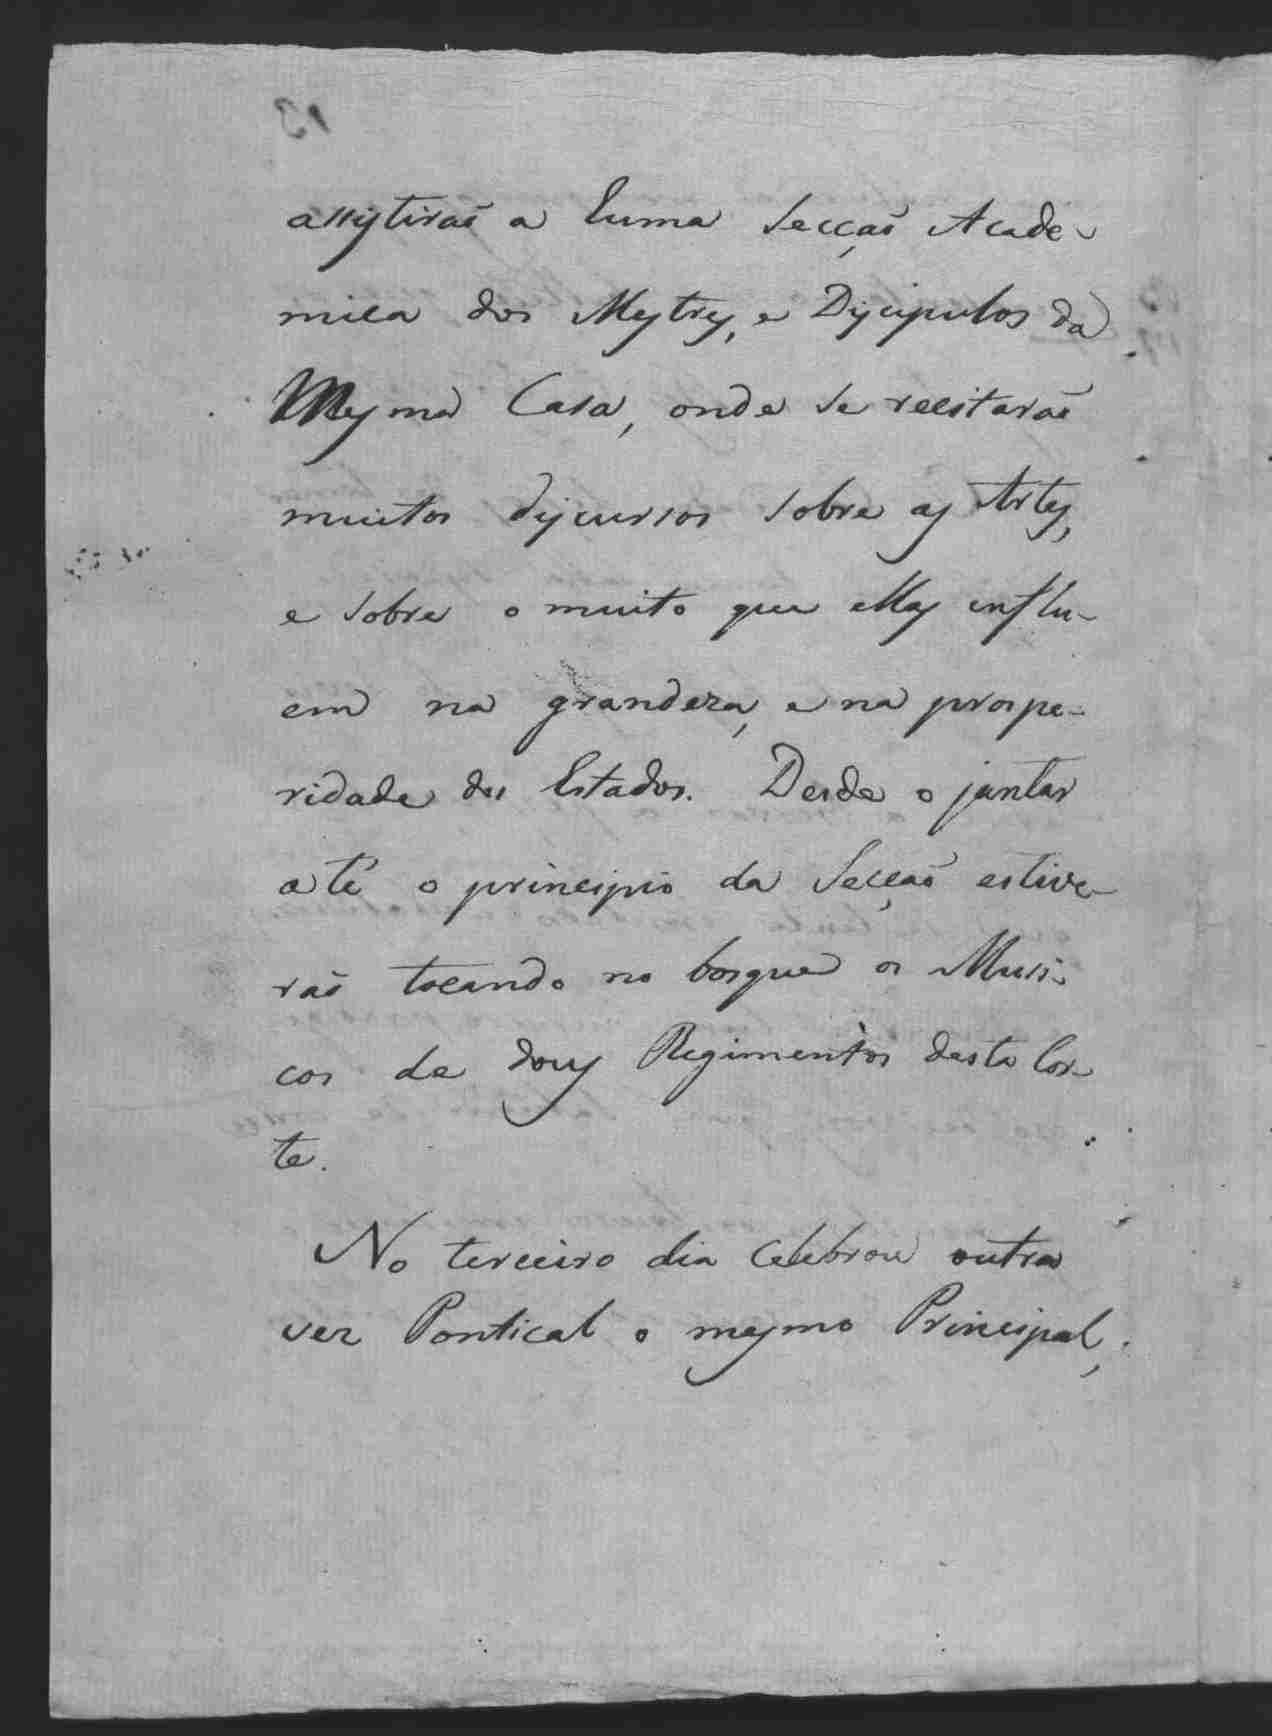 assistiraõ a huma Secçaõ Acade-
mica dos Mestres, e Discipulos da
Mesma Casa, onde se recitaraõ
muitos discursos sobre as Artes,
e sobre o muito que ellas influ-
em na grandeza, e na prospe-
ridade dos Estados. Desde o jantar
até o principio da Secçaõ estive-
raõ tocando no bosque os Musi-
cos de dous Regimentos desta Cor-
te.
No terceiro dia celebrou outra
vez Pontical o mesmo Principal,